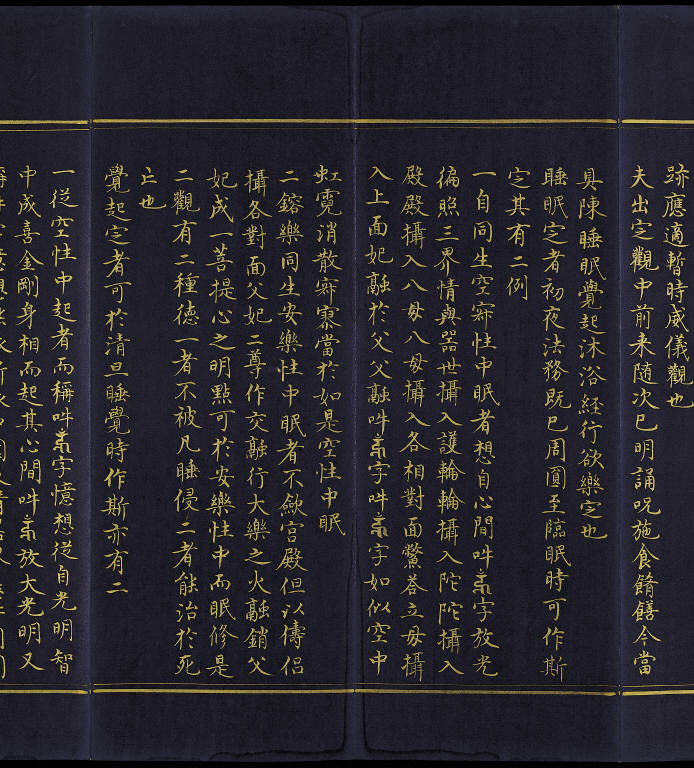 跡應適暫時威儀觀也
夫出定觀中前来随次已明誦呪施食餚饍今當
具陳睡眠覺起沐浴経行欲樂定也
睡眠定者初夜法務既已周圓至臨眠時可作斯
定其有二例
一自同生空寂性中眠者想自心間吽字放光
徧照三界情與器世攝入護輪輪攝入陀陀攝入
殿殿攝入八母八母攝入各相對面鱉荅立母攝
入上面妃融於父父融吽字吽字如似空中
虹霓消散寂寂當於如是空性中眠
二鎔樂同生安樂性中眠者不歛宫殿但以儔侣
攝各對面父妃二尊作交融行大樂之火融銷父
妃成一菩提心之明點可於安樂性中而眠修是
二觀有二種徳一者不被凡睡侵二者能治於死
亡也
覺起定者可於清旦睡覺時作斯亦有二
一從空性中起者而稱吽字憶想從自光明智
中成喜金剛身相而起其心間吽放大光明又